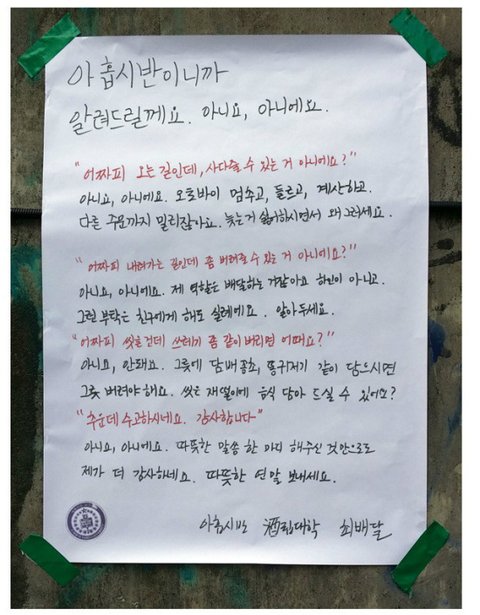 아홉시반이니까
알려드릴께요. 아니요, 아니에요.
"어짜피 오는길인데, 사다줄 수 있는 거 아니에요?"
아니요, 아니에요. 오토바이 멈추고, 들르고, 계산하고.
다른 주문까지 밀리잖아요. 늦는거 싫어하시면서 왜그러세요.
"어짜피 내려가는 길인데 좀 버려줄 수 있는거 아니에요?"
아니요, 아니에요. 제 역할은 배달하는거잖아요 하인이 아니고.
그런 부탁은 친구에게 해도 실례에요. 알아두세요.
"어짜피 씻을건데 쓰레기 좀 같이 버리면 어때요?"
아니요, 안돼요. 그릇에 담배꽁초, 똥귀저기 같이 담으시면
그릇 버려야해요. 씻은 재떨이에 음식 담아 드실 수 있어요?
"추운데 수고하시네요. 감사합니다"
아니요, 아니에요. 따뜻한 말씀 한 마디 해주신 것만으로
제가 더 감사하네요. 따뜻한 연말 보내세요.
아홉시반 酒립대학 최배달